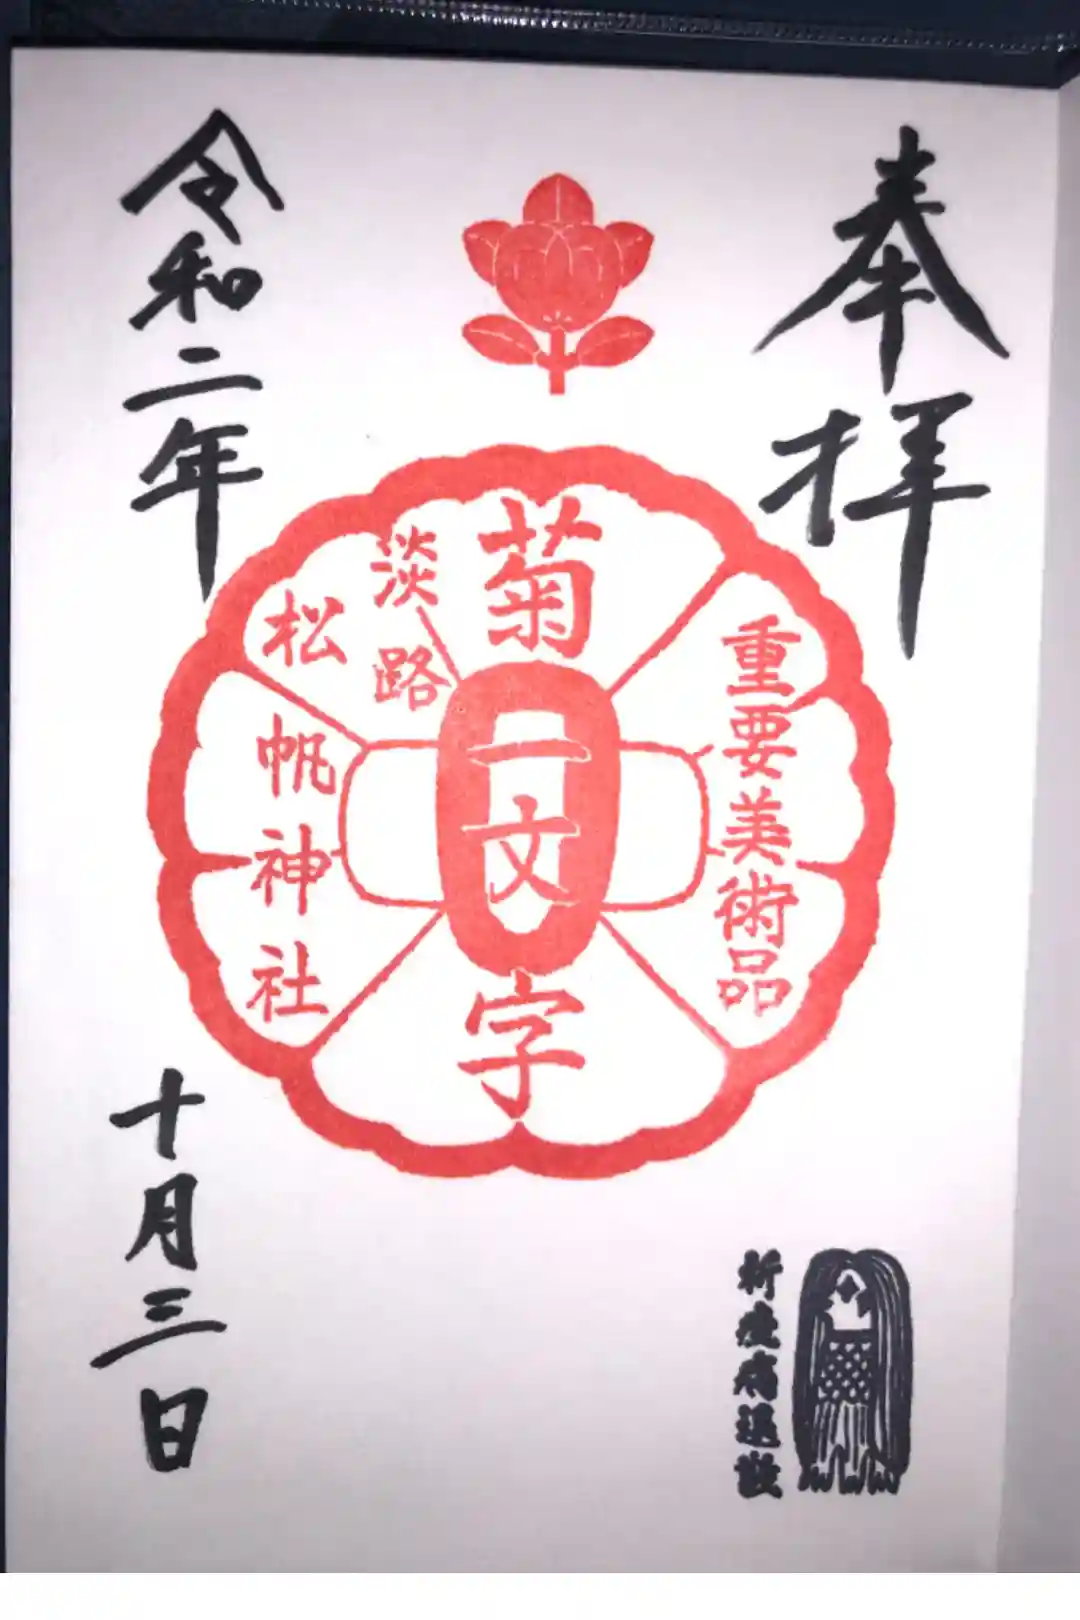 奉拝
重要美術品
菊一文字
淡路
松帆神社
令和二年
十月三日
祈疫病退散